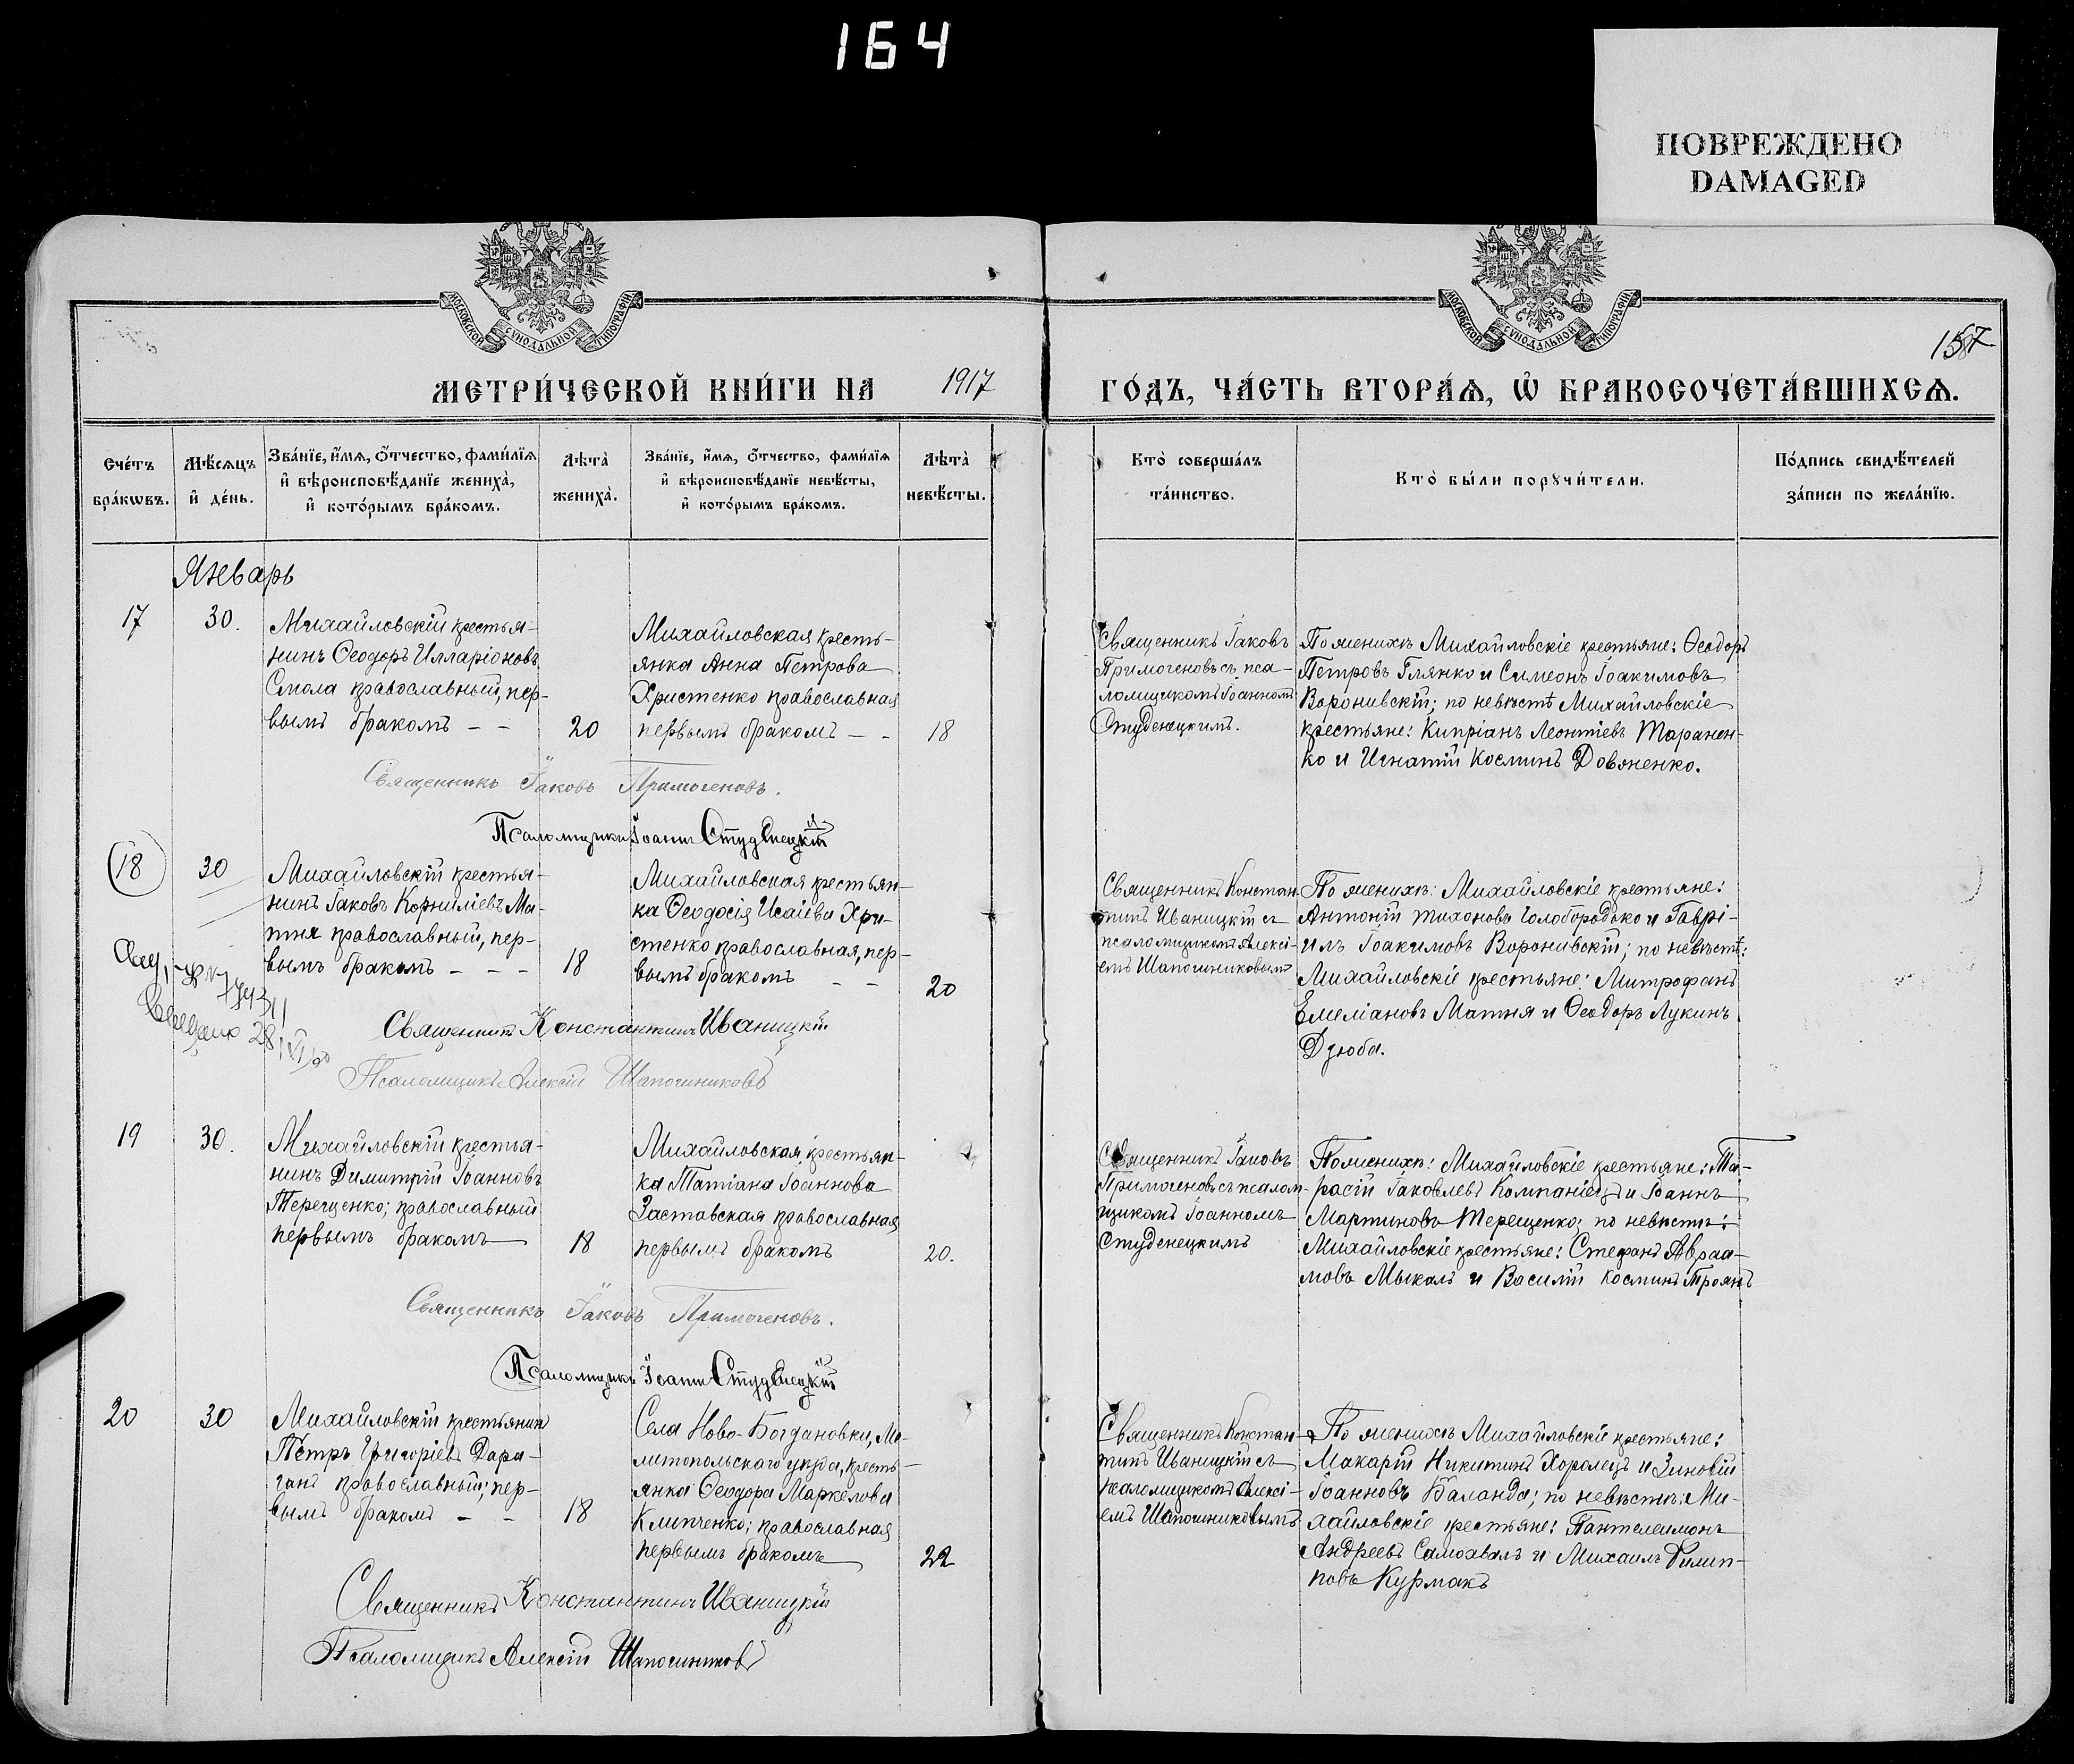 164
ПОВРЕЖДЕНО
DAMAGED
МОСКОВСКОЙ СѴНОДАЛЬНОЙ ТИПОГРАФІИ
МОСКОВСКОЙ СѴНОДАЛЬНОЙ ТИПОГРАФІИ
157
МЕТРИ́ЧЕСКОЙ КНИ́ГИ НА 1917 ГО́ДЪ, ЧА́СТЬ ВТОРА́Ѧ, Ѡ҆ БРАКОСОЧЕТА́ВШИХСѦ.
Сче́тъ
бра́кѡвъ.
Мѣ́сяцъ
и҆ де́нь.
Зва́нїе, и҆́мѧ, ѻ҆́тчество, фами́лїѧ
и҆ вѣроисповѣ́данїе жениха̀,
и҆ кото́рымъ бра́комъ.
Лѣта̀
жениха̀.
Зва́нїе, и҆́мѧ, ѻ҆́тчество, фами́лїѧ
и҆ вѣроисповѣ́данїе невѣ́сты,
и҆ кото́рымъ бра́комъ.
Лѣта̀
невѣ́сты.
Кто̀ соверша́лъ
та́инство.
Кто̀ бы́ли порꙋчи́тели.
По́дпись свидѣ́телей
за́писи по жела́нїю.
Январь
17
30.
Михайловскій крестья-
нинъ Ѳеодоръ Илларіоновъ
Смола православный, пер-
вымъ бракомъ – –
20
Михайловская кресть-
янка Анна Петрова
Христенко православная
первымъ бракомъ – –
18
Священникъ Іаковъ
Примогеновъ съ пса-
ломщикомъ Іоанномъ
Студенецкимъ.
По женихѣ Михайловскіе крестьяне: Ѳеодоръ
Петровъ Глянко и Симеонъ Іоакимовъ
Воронивскій; по невѣстѣ Михайловскіе
крестьяне: Кипріанъ Леонтіевъ Таранен-
ко и Игнатій Косминъ Довяненко.
Священникъ Іаковъ Примогеновъ.
Псаломщикъ Іоаннъ Студенецкій
18
30
Михайловскій крестья-
нинъ Іаковъ Корниліевъ Ма-
тня православный, пер-
вымъ бракомъ – – –
18
Михайловская крестьян-
ка Ѳеодосія Исаіева Хри-
стенко православная, пер-
вымъ бракомъ – –
20
Священникъ Констан-
тинъ Иваницкій съ
псаломщикомъ Алексі-
емъ Шапошниковымъ
По женихѣ: Михайловскіе крестьяне:
Антоній Тихоновъ Голобородько и Гаврі-
илъ Іоакимовъ Воронивскій; по невѣстѣ:
Михайловскіе крестьяне: Митрофанъ
Емеліановъ Матня и Ѳеодоръ Лукинъ
Дзюба.
Священникъ Константинъ Иваницкій
Псаломщикъ Алексій Шапошниковъ
19
30.
Михайловскій крестья-
нинъ Димитрій Іоанновъ
Терещенко; православный
первымъ бракомъ
18
Михайловская крестьян-
ка Татіана Іоаннова
Заставская православная
первымъ бракомъ
20.
Священникъ Іаковъ
Примогеновъ съ псалом-
щикомъ Іоанномъ
Студенецкимъ
По женихѣ: Михайловскіе крестьяне: Та-
расій Іаковлевъ Компаніецъ и Іоаннъ
Мартиновъ Терещенко; по невѣстѣ:
Михайловскіе крестьяне: Стефанъ Авраа-
мовъ Мыкалъ и Василій Косминъ Троянъ
Священникъ Іаковъ Примогеновъ.
Псаломщикъ Іоаннъ Студенецкій
20
30
Михайловскій крестьянинъ
Петръ Григоріевъ Дара-
ганъ православный; пер-
вымъ бракомъ – –
18
Села Ново-Богдановки, Ме-
литопольскаго уѣзда, кресть-
янка Ѳеодора Маркелова
Климченко; православная
первымъ бракомъ
22
Священникъ Констан-
тинъ Иваницкій съ
псаломщикомъ Алексі-
емъ Шапошниковымъ
По женихѣ Михайловскіе крестьяне:
Макарій Никитинъ Хоролецъ и Зиновій
Іоанновъ Баланда; по невѣстѣ: Ми-
хайловскіе крестьяне: Пантелеимонъ
Андреевъ Самохвалъ и Михаилъ Филип-
повъ Курмакъ
Священникъ Константинъ Иваницкій
Псаломщикъ Алексій Шапошниковъ